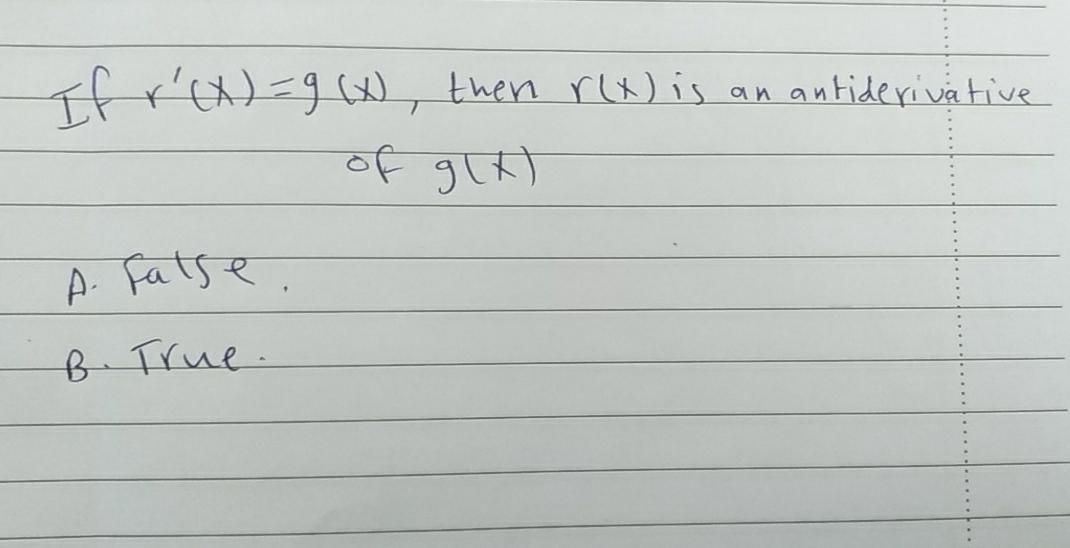 If r'(x)=g(x), then r(x) is an antiderivative
of g(x)
A. False.
B. True.